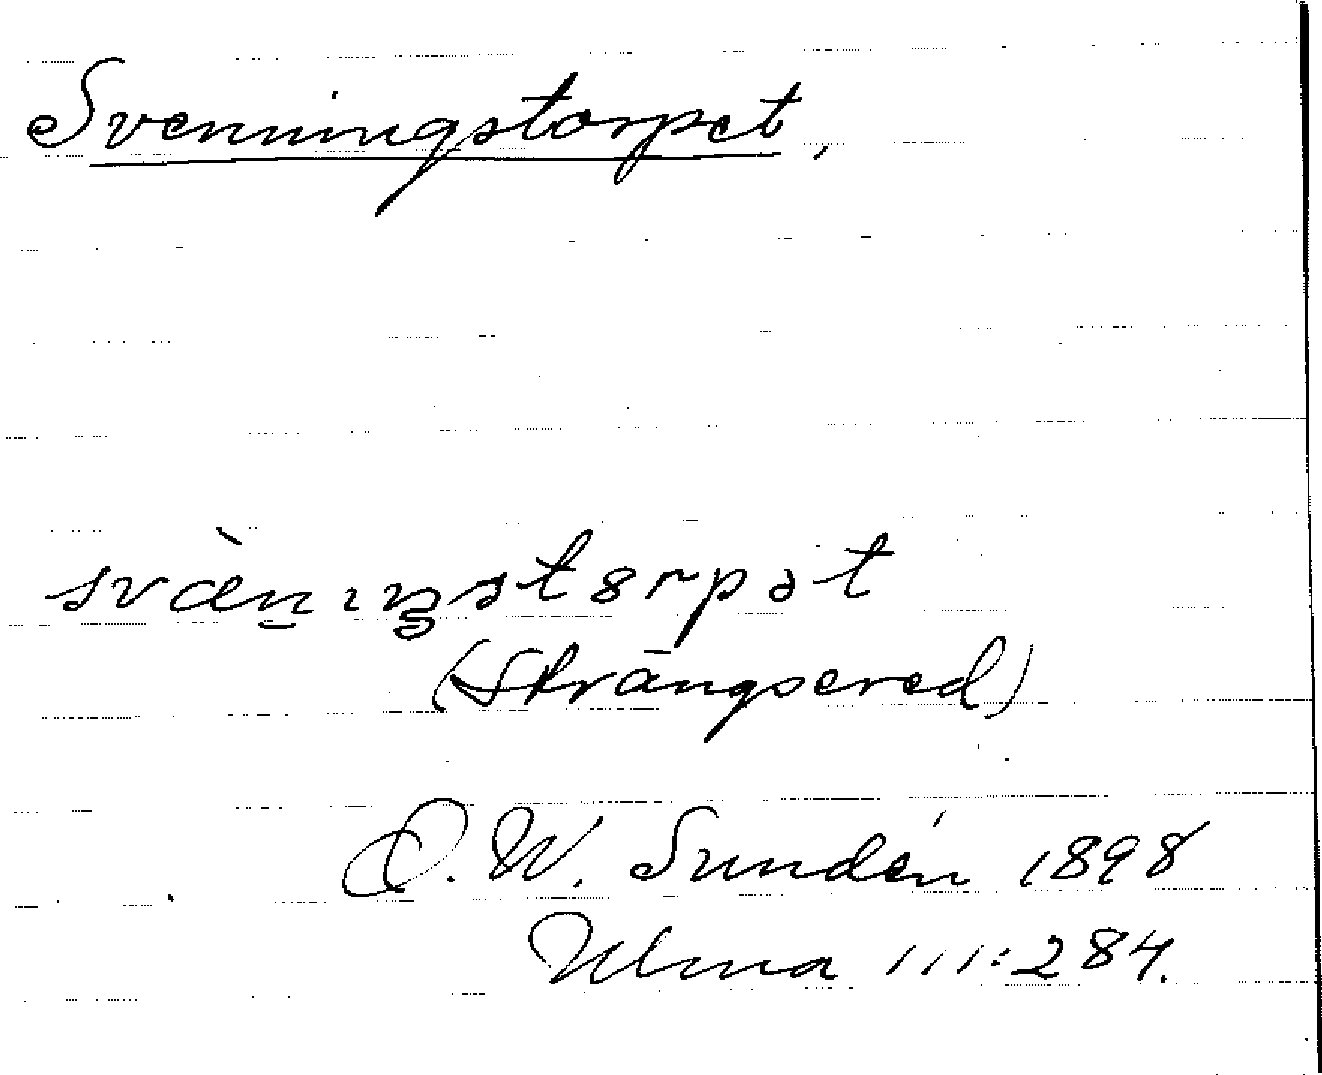 Svenningstorpet,
svæ̀n̠ıŋstɞrpət
(Strängsered)
D. W. Sundén 1898
Ulma 111:284.